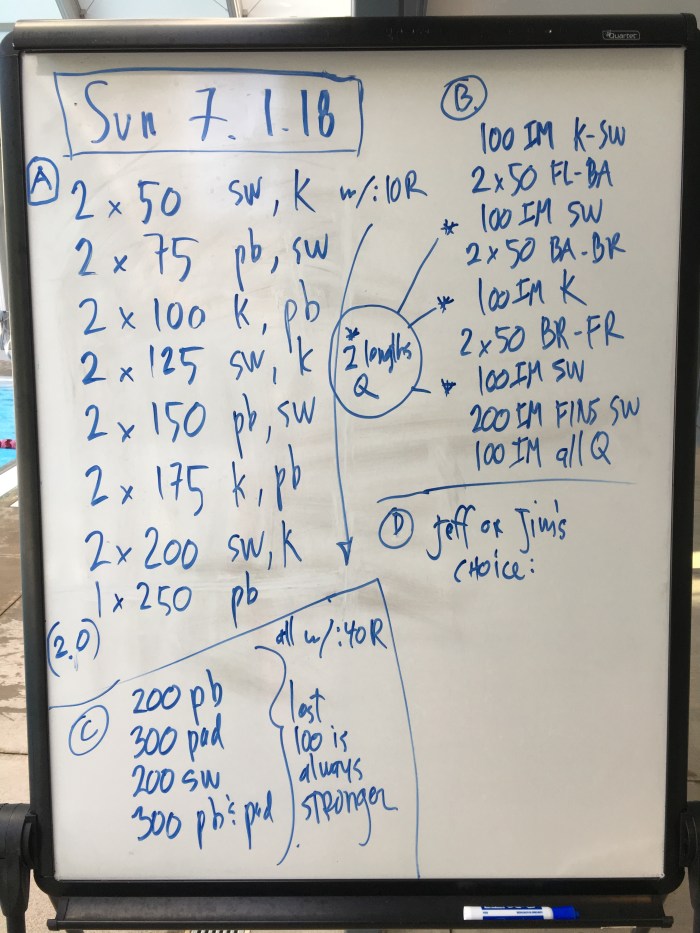 Quartet
Sun 7.1.18
A
2 x 50 sw, K w/:10R
2 x 75 pb, sw
2 x 100 K, pb
2 x 125 sw, K
2 x 150 pb, sw
2 x 175 K, pb
2 x 200 sw, K
1 x 250 pb
(2.0)
* 2 lengths
Q
B.
100 IM K-SW
2 x 50 FL-BA
* 100 IM SW
2 x 50 BA-BR
* 100 IM K
2 x 50 BR-FR
* 100 IM SW
200 IM FINS SW
100 IM all Q
C
all w/:40R
200 pb
300 pad
200 sw
300 pb & pad
last
100 is
always
stronger
D Jeff or Jim's
CHOICE: